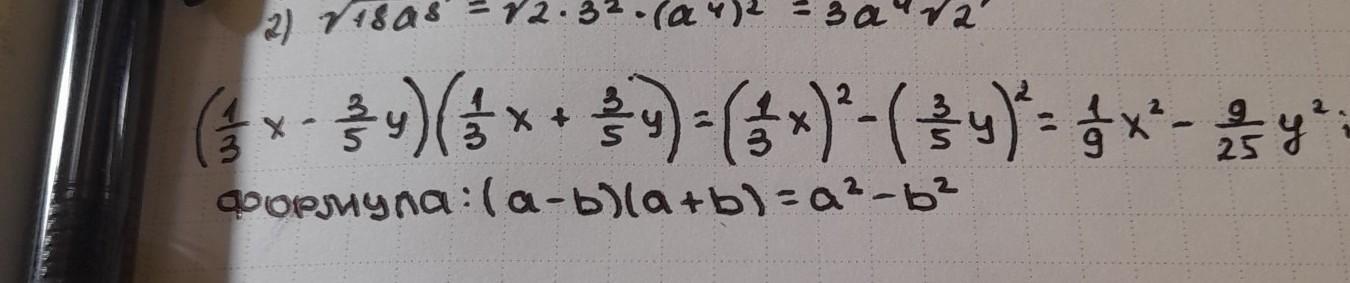 2) √18a8 = √2·3²·(a⁴)² = 3a⁴√2
(1/3 x - 3/5 y)(1/3 x + 3/5 y) = (1/3 x)² - (3/5 y)² = 1/9 x² - 9/25 y²;
формула: (a-b)(a+b) = a² - b²